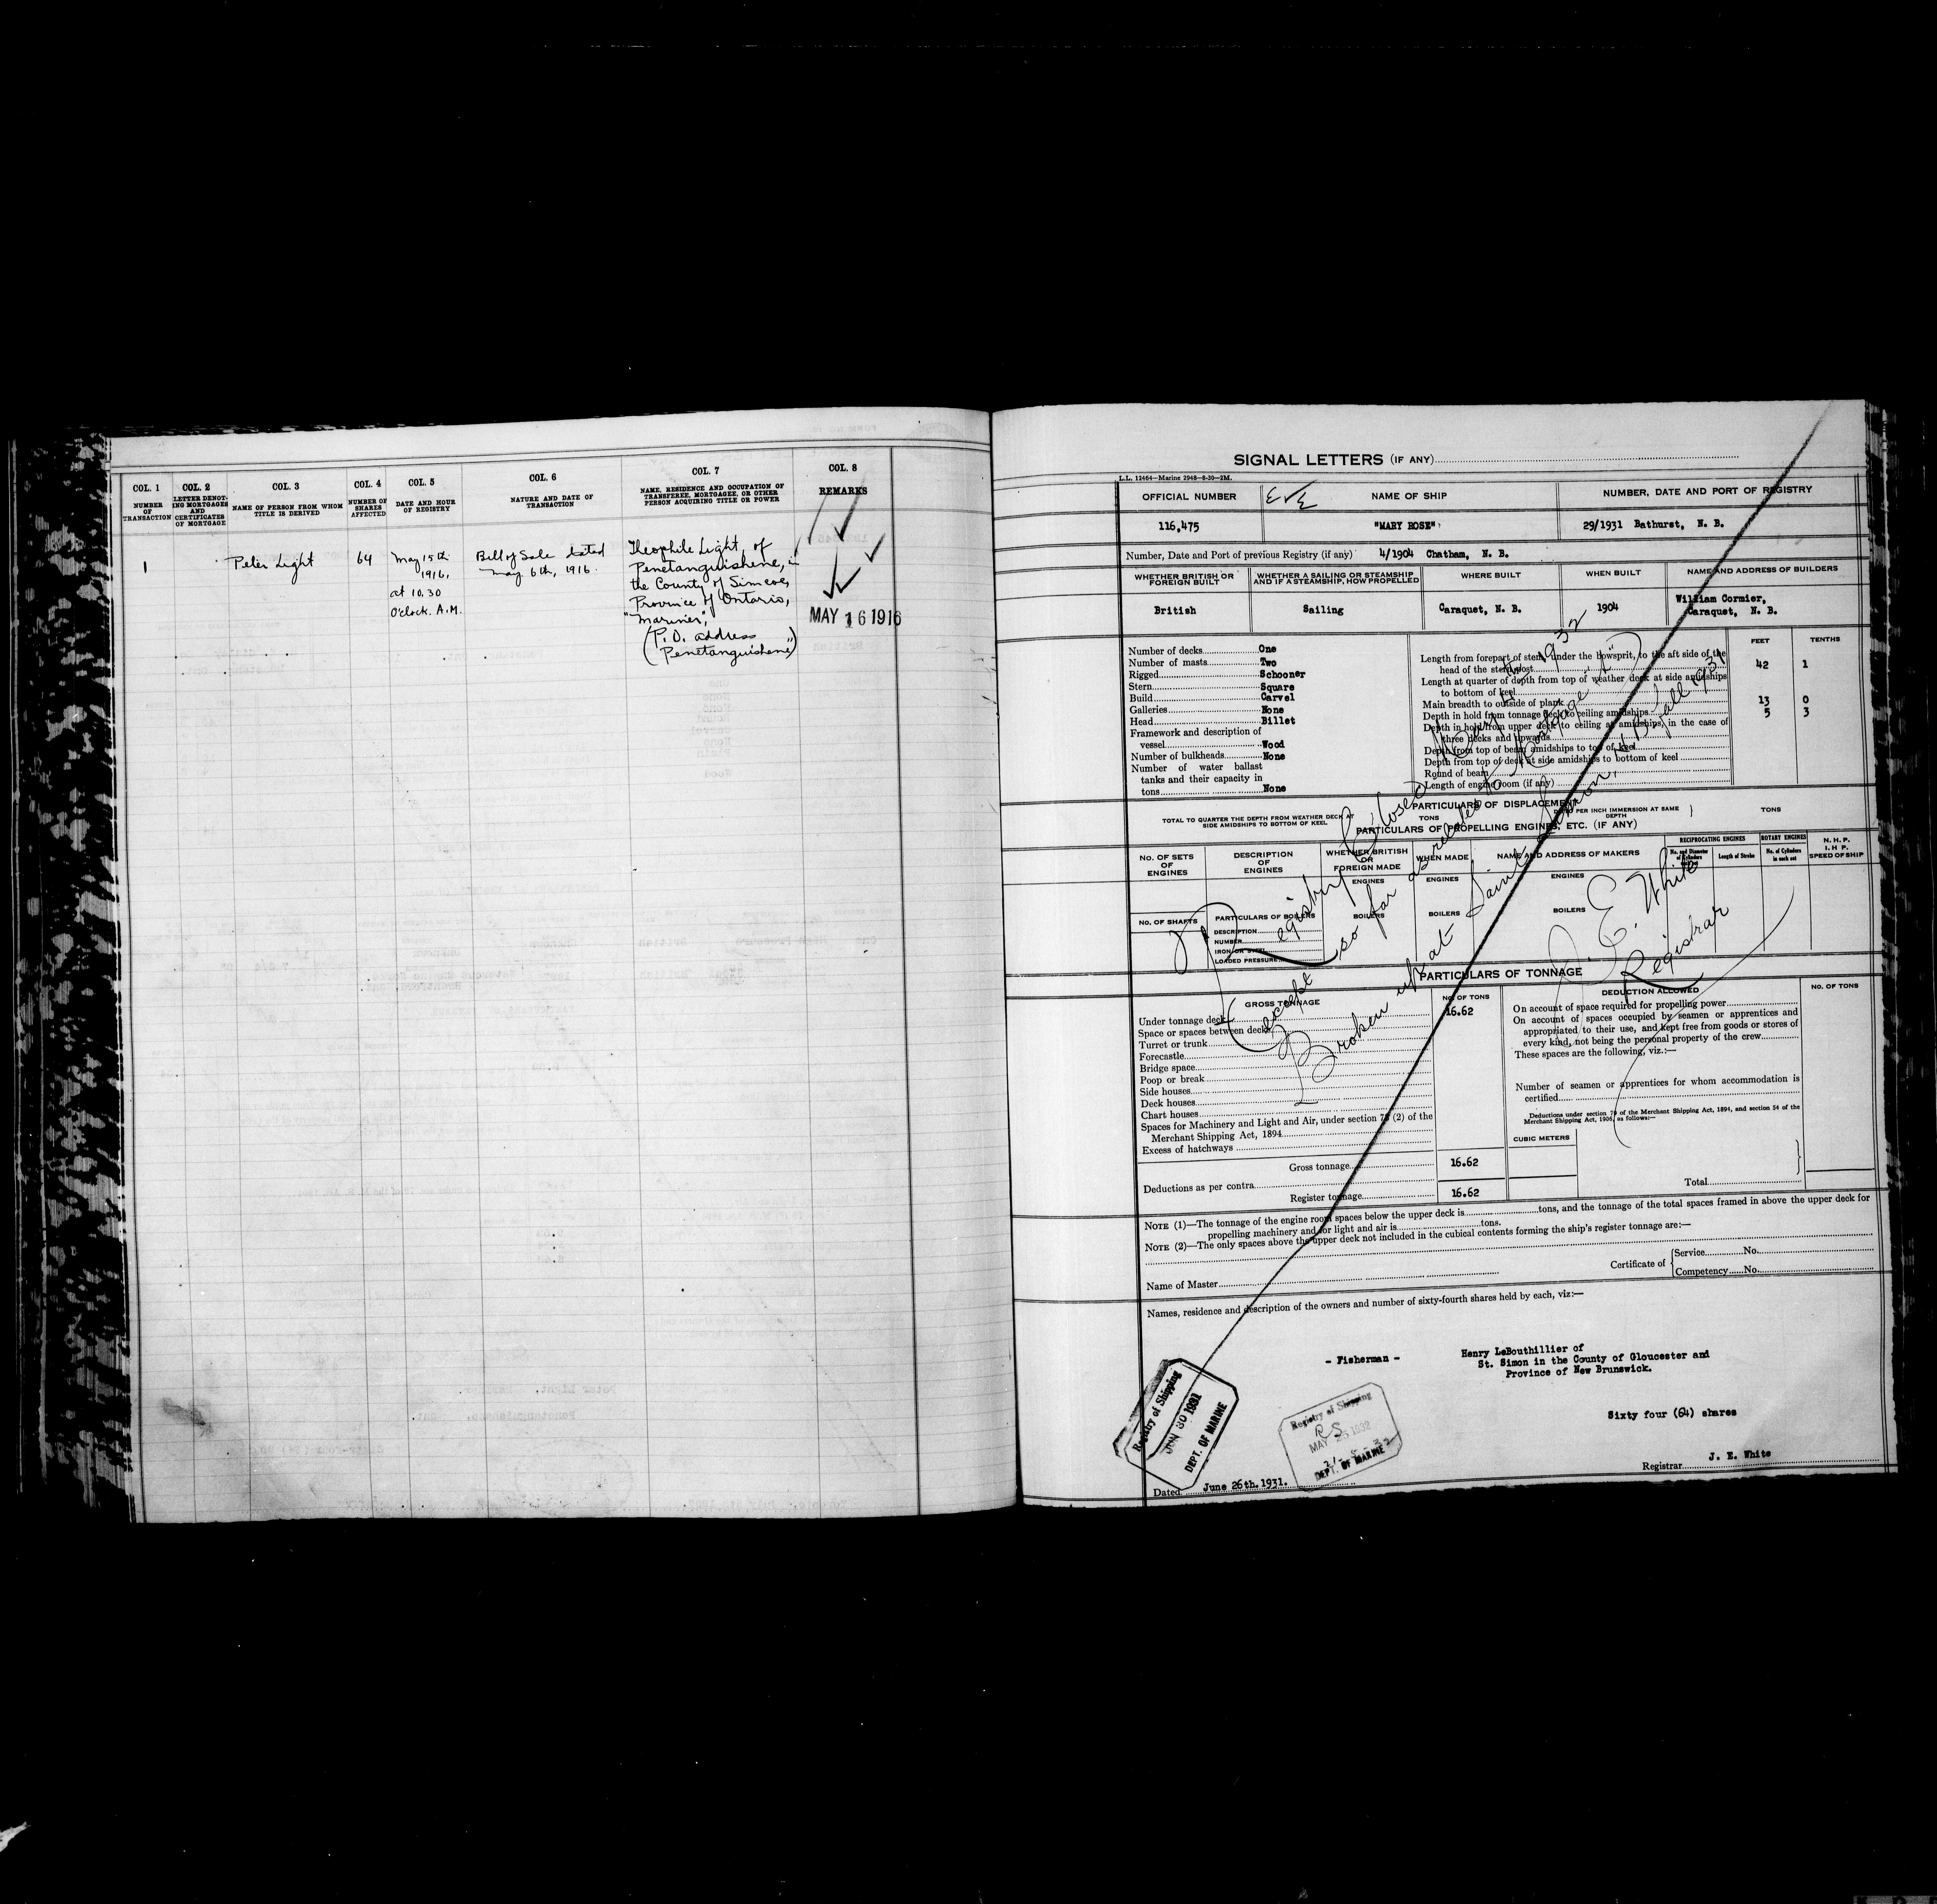 COL. 1
NUMBER OF TRANSACTION
COL. 2
LETTER DENOTING MORTGAGES AND CERTIFICATES OF MORTGAGE
COL. 3
NAME OF PERSON FROM WHOM TITLE IS DERIVED
COL. 4
NUMBER OF SHARES AFFECTED
COL. 5
DATE AND HOUR OF REGISTRY
COL. 6
NATURE AND DATE OF TRANSACTION
COL. 7
NAME, RESIDENCE AND OCCUPATION OF TRANSFEREE, MORTGAGEE, OR OTHER PERSON ACQUIRING TITLE OR POWER
COL. 8
REMARKS
1
Peter Light
64
May 15th
1916,
at 10.30
O'clock. A.M.
Bill of Sale dated
May 6th, 1916.
Theophile Light, of
Penetanguishene, in
the County of Simcoe,
Province of Ontario,
"Mariner",
(P.O. address
Penetanguishene")
MAY 16 1916
SIGNAL LETTERS (IF ANY)
L.L. 12464—Marine 2948—8-30—2M.
OFFICIAL NUMBER
NAME OF SHIP
NUMBER, DATE AND PORT OF REGISTRY
116,475
"MARY ROSE"
29/1931 Bathurst, N. B.
Number, Date and Port of previous Registry (if any) 4/1904 Chatham, N. B.
WHETHER BRITISH OR FOREIGN BUILT
WHETHER A SAILING OR STEAMSHIP AND IF A STEAMSHIP, HOW PROPELLED
WHERE BUILT
WHEN BUILT
NAME AND ADDRESS OF BUILDERS
British
Sailing
Caraquet, N. B.
1904
William Cormier,
Caraquet, N. B.
FEET
TENTHS
Number of decks One
Number of masts Two
Rigged Schooner
Stern Square
Build Carvel
Galleries None
Head Billet
Framework and description of
vessel Wood
Number of bulkheads None
Number of water ballast
tanks and their capacity in
tons None
Length from forepart of stem, under the bowsprit, to the aft side of the
head of the sternpost 42 1
Length at quarter of depth from top of weather deck at side amidships
to bottom of keel
Main breadth to outside of plank 13 0
Depth in hold from tonnage deck to ceiling amidships 5 3
Depth in hold from upper deck to ceiling at amidships, in the case of
three decks and upwards
Depth from top of beam amidships to top of keel
Depth from top of deck at side amidships to bottom of keel
Round of beam
Length of engine room (if any)
PARTICULARS OF DISPLACEMENT
TOTAL TO QUARTER THE DEPTH FROM WEATHER DECK AT
SIDE AMIDSHIPS TO BOTTOM OF KEEL
TONS
PER INCH IMMERSION AT SAME
DEPTH
TONS
PARTICULARS OF PROPELLING ENGINES, ETC. (IF ANY)
NO. OF SETS OF ENGINES
DESCRIPTION OF ENGINES
WHETHER BRITISH OR FOREIGN MADE
WHEN MADE
NAME AND ADDRESS OF MAKERS
RECIPROCATING ENGINES
No. and Diameter of Cylinders
Length of Stroke
ROTARY ENGINES
No. of Cylinders in each set
N. H. P.
I. H. P.
SPEED OF SHIP
ENGINES
ENGINES
ENGINES
NO. OF SHAFTS
PARTICULARS OF BOILERS
BOILERS
BOILERS
BOILERS
DESCRIPTION
NUMBER
IRON OR STEEL
LOADED PRESSURE
Registry Closed May 1932
(Except so far as relates to Mortgage
Broken up at Saint Simon, N.B. fall 1931
J. E. White
Registrar
PARTICULARS OF TONNAGE
GROSS TONNAGE
NO. OF TONS
DEDUCTION ALLOWED
NO. OF TONS
Under tonnage deck 16.62
Space or spaces between decks
Turret or trunk
Forecastle
Bridge space
Poop or break
Side houses
Deck houses
Chart houses
Spaces for Machinery and Light and Air, under section 78 (2) of the
Merchant Shipping Act, 1894
Excess of hatchways
Gross tonnage 16.62
Deductions as per contra
Register tonnage 16.62
On account of space required for propelling power
On account of spaces occupied by seamen or apprentices and
appropriated to their use, and kept free from goods or stores of
every kind, not being the personal property of the crew
These spaces are the following, viz.:—
Number of seamen or apprentices for whom accommodation is
certified
Deductions under section 79 of the Merchant Shipping Act, 1894, and section 54 of the
Merchant Shipping Act, 1906, as follows:—
CUBIC METERS
Total
NOTE (1)—The tonnage of the engine room spaces below the upper deck is tons, and the tonnage of the total spaces framed in above the upper deck for
propelling machinery and for light and air is tons.
NOTE (2)—The only spaces above the upper deck not included in the cubical contents forming the ship's register tonnage are:—
Name of Master
Certificate of
Service No.
Competency No.
Names, residence and description of the owners and number of sixty-fourth shares held by each, viz:—
- Fisherman -
Henry LeBouthillier of
St. Simon in the County of Gloucester and
Province of New Brunswick.
Sixty four (64) shares
Registry of Shipping
JUN 30 1931
DEPT. OF MARINE
Registry of Shipping
RS
MAY 25 1932
DEPT. OF MARINE
J. E. White
Registrar
Dated June 26th, 1931.